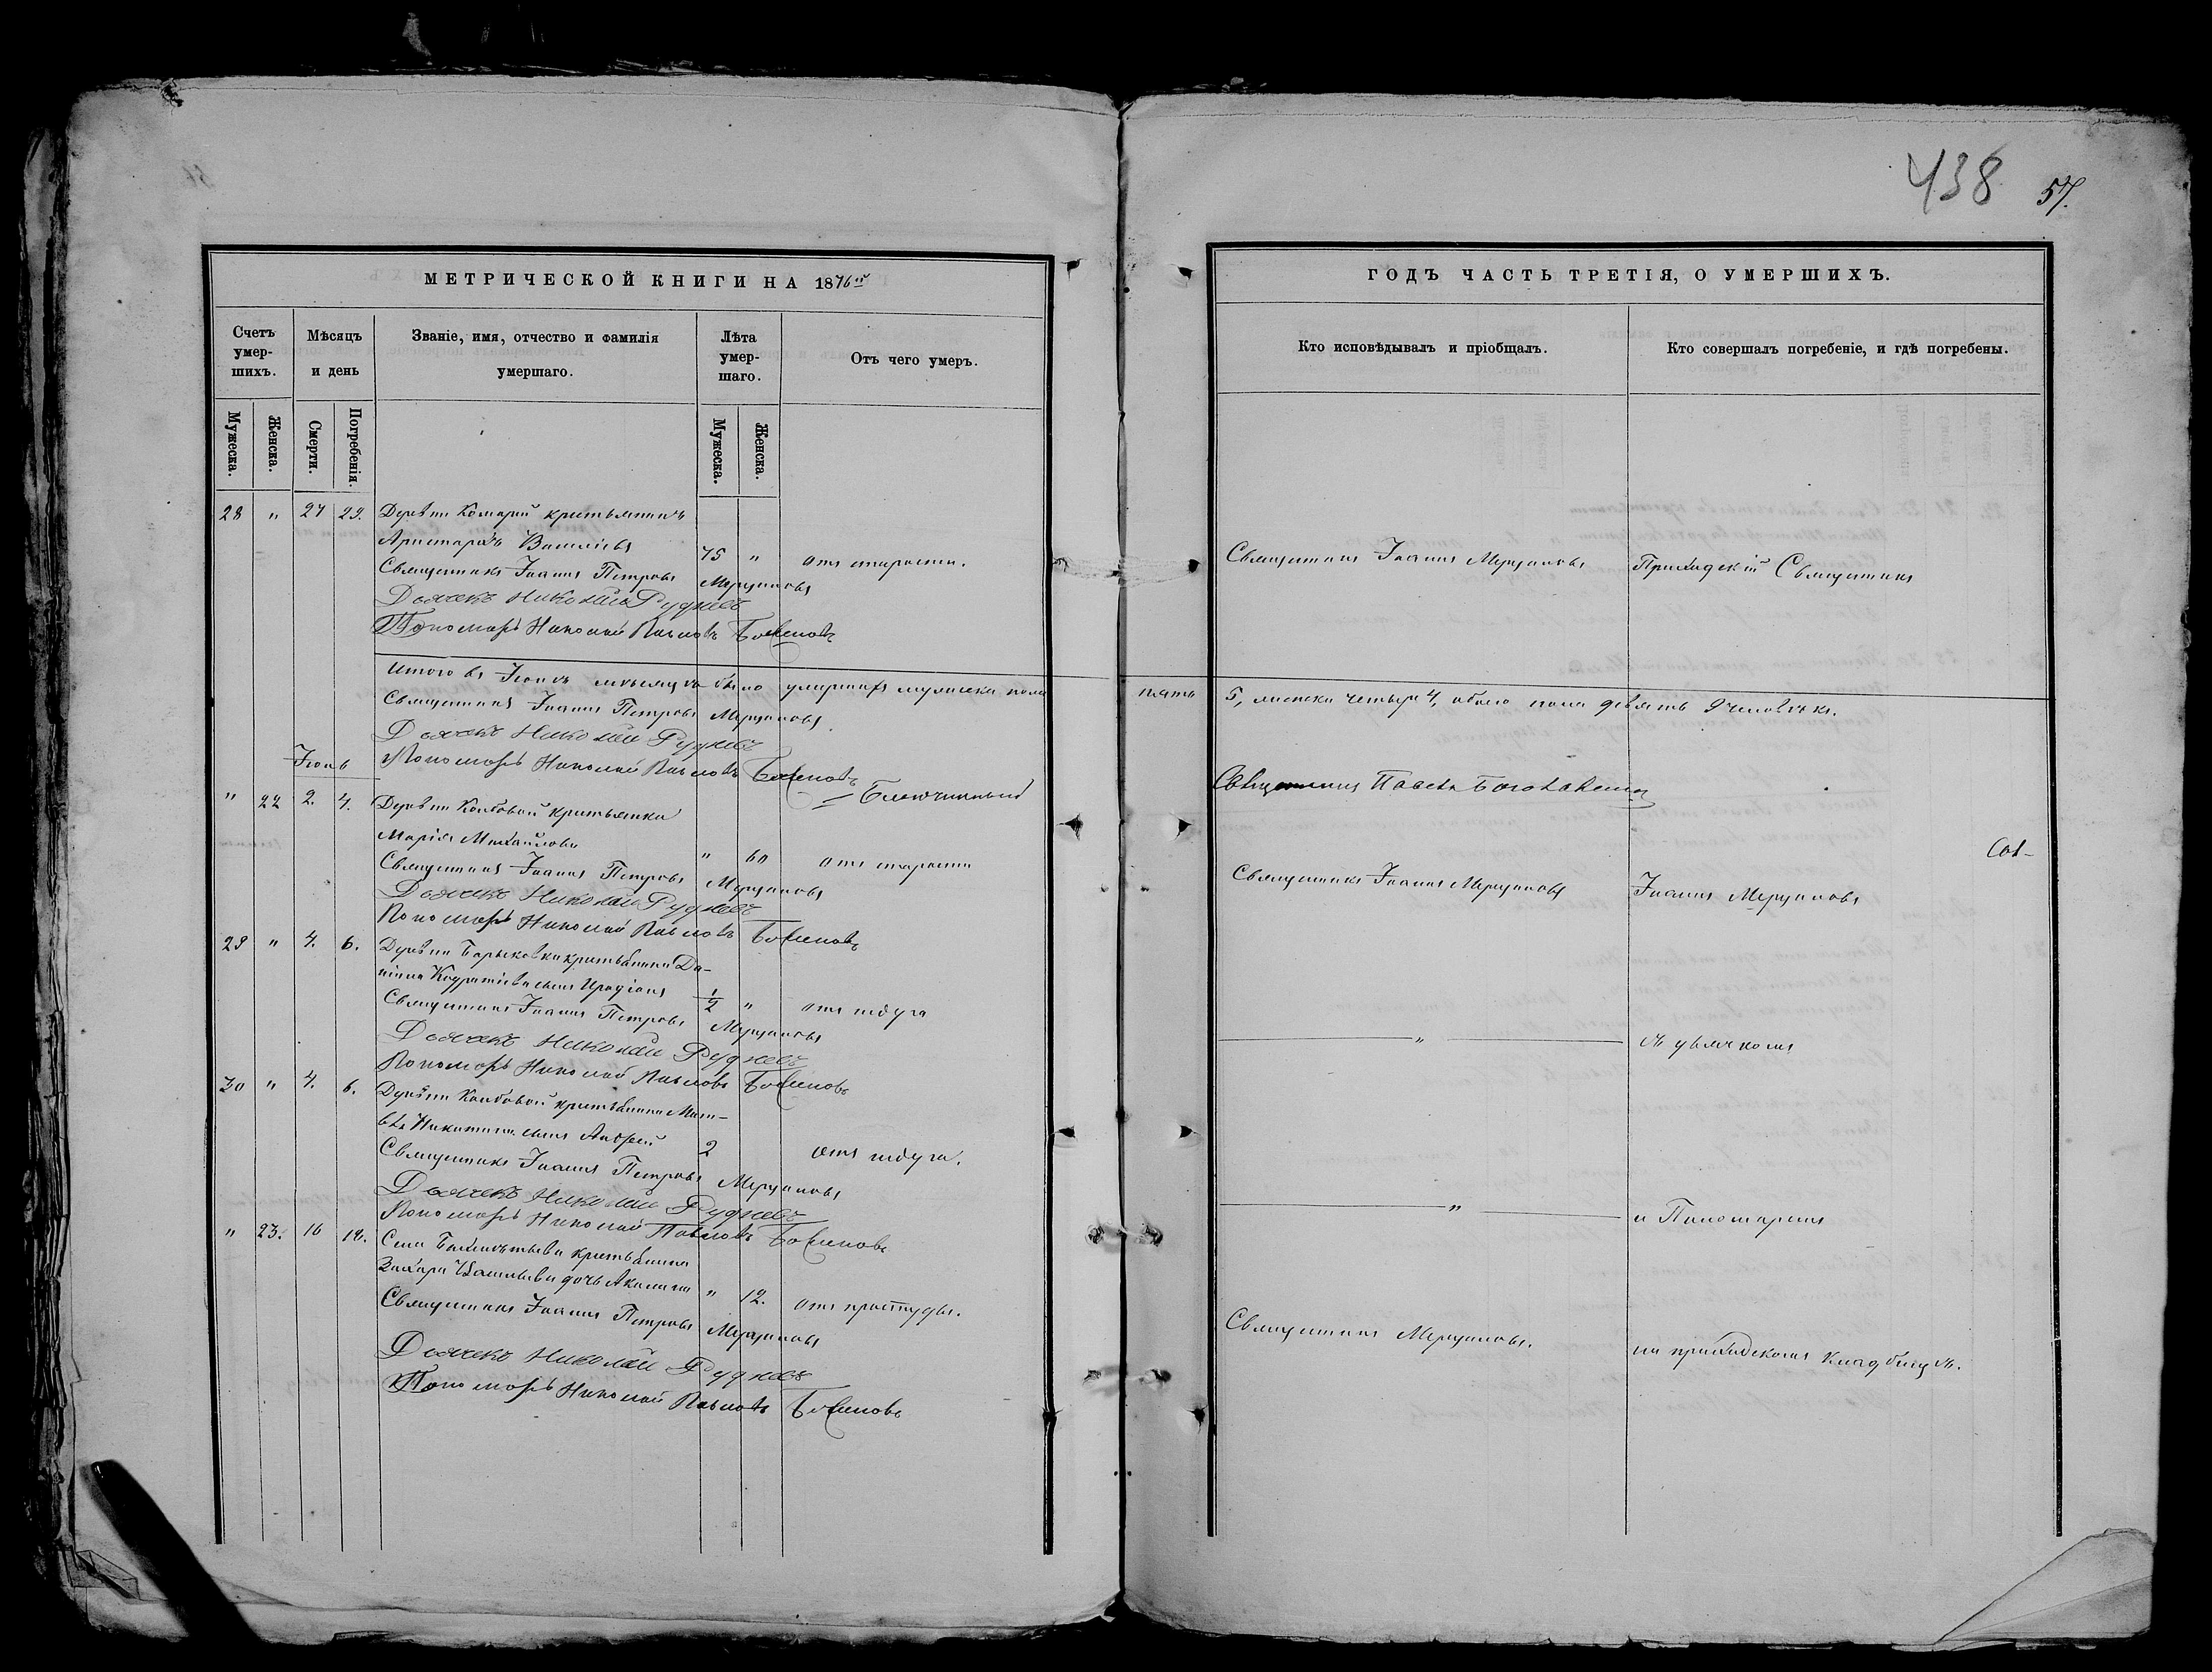 438 57.
МЕТРИЧЕСКОЙ КНИГИ НА 1876й
Счетъ умер-шихъ.
Мѣсяцъ и день
Званіе, имя, отчество и фамилія умершаго.
Лѣта умер-шаго.
Отъ чего умеръ.
Мужеска.
Женска.
Смерти.
Погребенія.
Мужеска.
Женска.
28 " 27 29. Деревни Комарей крестьянинъ
Аристархъ Васильевъ 75 " отъ старости.
Священникъ Іоаннъ Петровъ Мерцаловъ
Дьячекъ Николай Рудневъ
Пономарь Николай Павловъ
Итого въ Іюнѣ мѣсяцѣ было умершихъ мужеска пола
Священникъ Іоаннъ Петровъ Мерцаловъ.
Дьячекъ Николай Рудневъ
Пономарь Николай Павловъ
Благочинный
Іюль
" 22 2. 4. Деревни крестьянка
Марія Михайлова " 60 отъ старости
Священникъ Іоаннъ Петровъ Мерцаловъ
Дьячекъ Николай Рудневъ
Пономарь Николай Павловъ
29 " 4. 6. Деревни Барыковки крестьянина Да-
сынъ Иродіонъ 1/2 " отъ недуга
Священникъ Іоаннъ Петровъ Мерцаловъ
Дьячекъ Николай Рудневъ
Пономарь Николай Павловъ
30 " 4. 6. Деревни крестьянина Мат-
вѣя Никитина сынъ Андрей 2 отъ недуга.
Священникъ Іоаннъ Петровъ Мерцаловъ
Дьячекъ Николай Рудневъ
Пономарь Николай Павловъ
" 23. 16 18. Села крестьянина
Захара дочь Акилина " 12. отъ простуды.
Священникъ Іоаннъ Петровъ Мерцаловъ
Дьячекъ Николай Рудневъ
Пономарь Николай Павловъ
ГОДЪ ЧАСТЬ ТРЕТІЯ, О УМЕРШИХЪ.
Кто исповѣдывалъ и пріобщалъ.
Кто совершалъ погребеніе, и гдѣ погребены.
Священникъ Іоаннъ Мерцаловъ
Приходскій Священникъ
пять 5, женска четыре 4, обоего пола девять 9 человѣкъ.
Священникъ Павелъ
Священникъ Іоаннъ Мерцаловъ
Іоаннъ Мерцаловъ
"
съ дьячкомъ
"
и Пономаремъ
Священникъ Мерцаловъ.
на приходскомъ кладбищѣ.